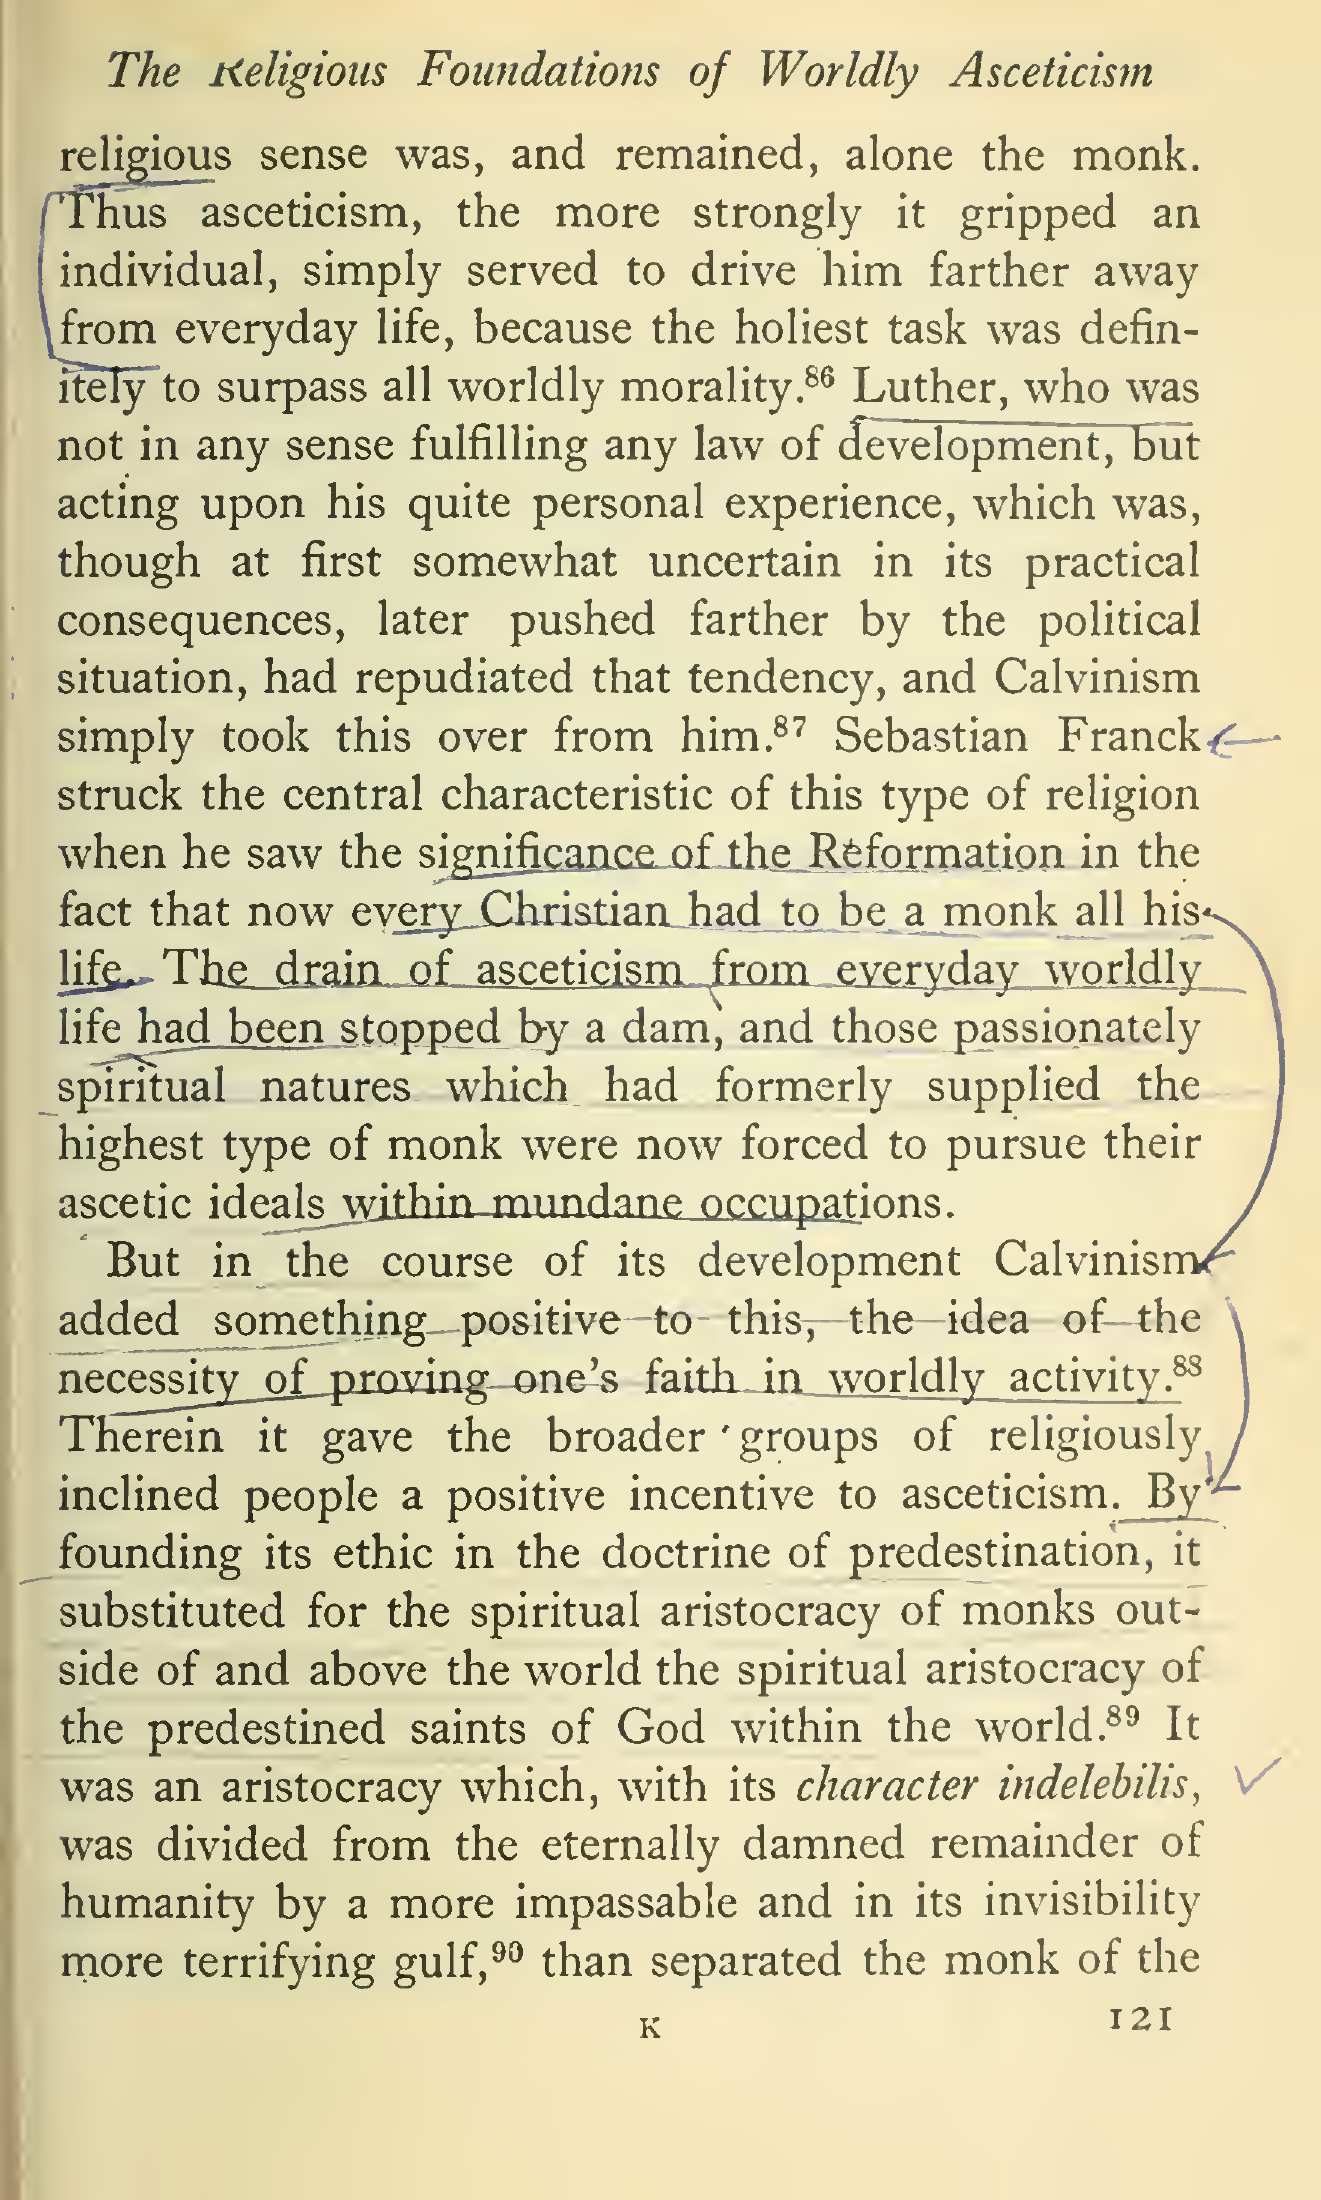 The Religious Foundations of Worldly Asceticism
religious sense was, and remained, alone the monk.
Thus asceticism, the more strongly it gripped an
individual, simply served to drive him farther away
from everyday life, because the holiest task was defin-
itely to surpass all worldly morality.⁸⁶ Luther, who was
not in any sense fulfilling any law of development, but
acting upon his quite personal experience, which was,
though at first somewhat uncertain in its practical
consequences, later pushed farther by the political
situation, had repudiated that tendency, and Calvinism
simply took this over from him.⁸⁷ Sebastian Franck
struck the central characteristic of this type of religion
when he saw the significance of the Reformation in the
fact that now every Christian had to be a monk all his
life. The drain of asceticism from everyday worldly
life had been stopped by a dam, and those passionately
spiritual natures which had formerly supplied the
highest type of monk were now forced to pursue their
ascetic ideals within mundane occupations.
But in the course of its development Calvinism
added something positive to this, the idea of the
necessity of proving one's faith in worldly activity.⁸⁸
Therein it gave the broader groups of religiously
inclined people a positive incentive to asceticism. By
founding its ethic in the doctrine of predestination, it
substituted for the spiritual aristocracy of monks out-
side of and above the world the spiritual aristocracy of
the predestined saints of God within the world.⁸⁹ It
was an aristocracy which, with its character indelebilis,
was divided from the eternally damned remainder of
humanity by a more impassable and in its invisibility
more terrifying gulf,⁹⁰ than separated the monk of the
K
121